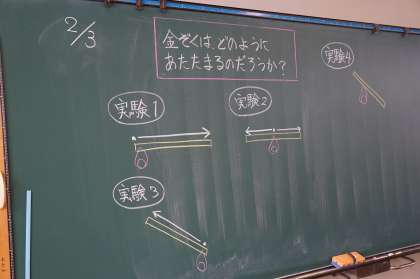 2/3
金ぞくは、どのように
あたたまるのだろうか?
実験1
実験2
実験3
実験4